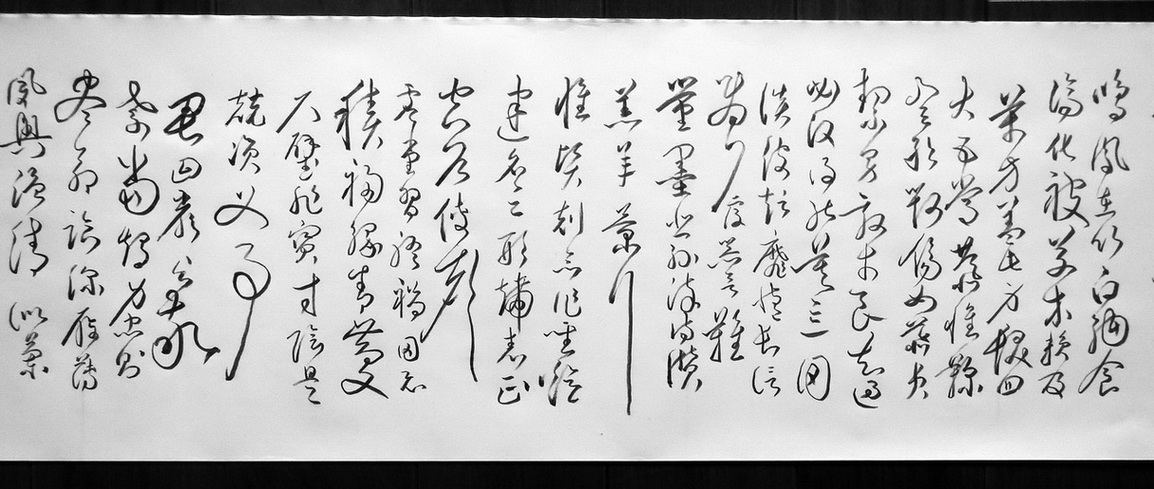 鳴鳳在竹白駒食
場化被草木賴及
萬方蓋此身髮四
大五常恭惟鞠
養豈敢毀傷女慕貞
絜男效才良知過
必改得能莫忘罔
談彼短靡恃己長信
使可覆器欲難
量墨悲絲染詩讚
羔羊景行
維賢剋念作聖德
建名立形端表正
空谷傳聲
虛堂習聽禍因惡
積福緣善慶
尺璧非寶寸陰是
競資父事
君曰嚴與敬
孝當竭力忠則
盡命臨深履薄
夙興溫凊似蘭